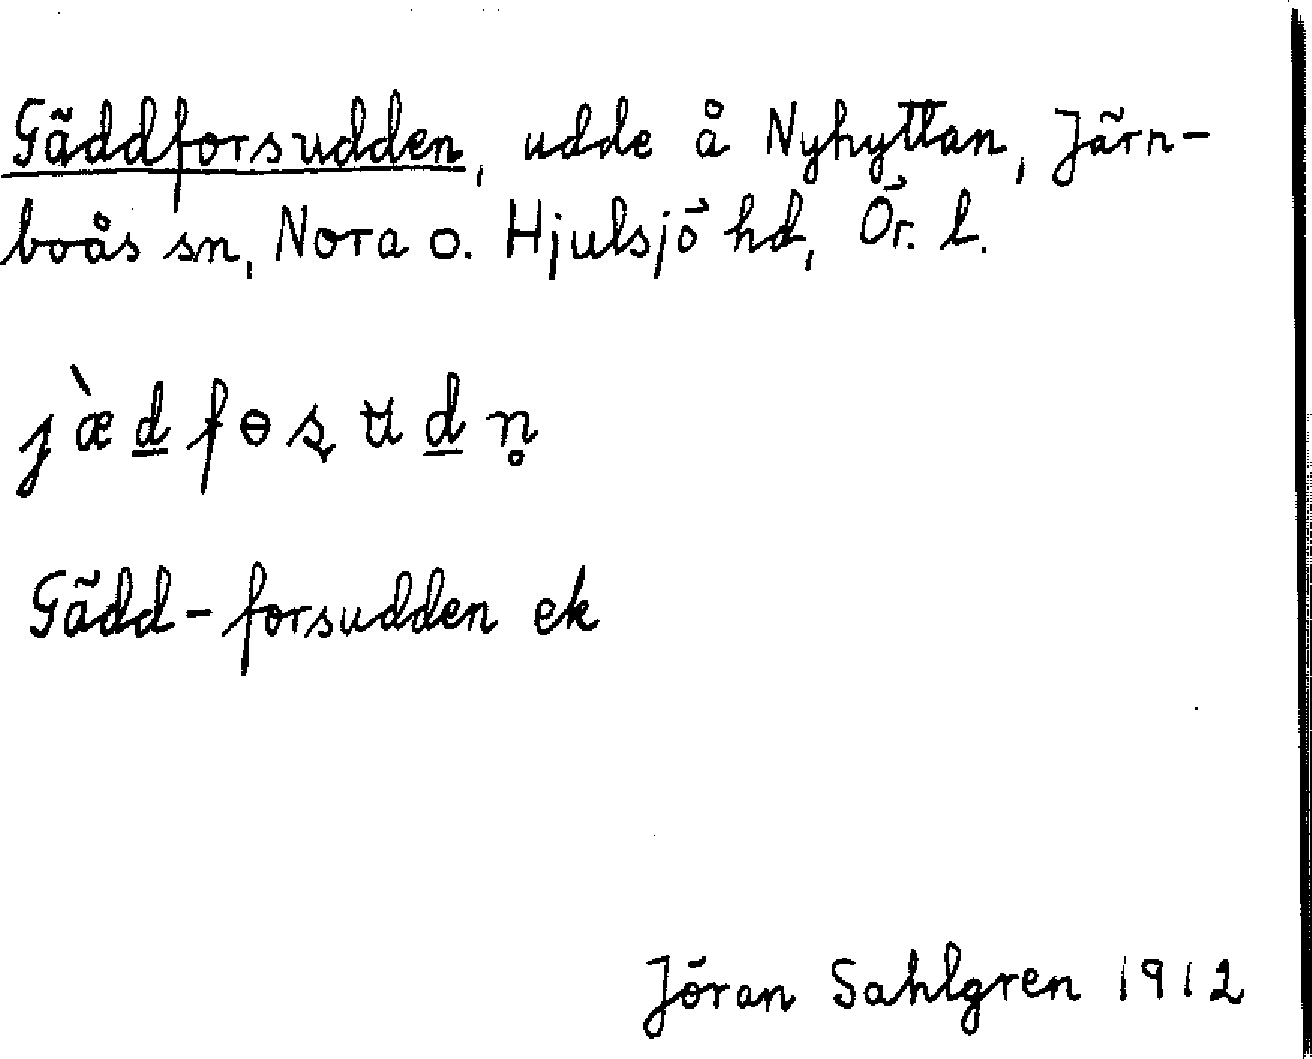 Gäddforsudden, udde å Nyhyttan, Järn-
boås sn, Nora o. Hjulsjö hd, Ör. l.
j æ̀ d̲ f ɵ ʂ ʉ d̲ n̥
Gädd-forsudden ek
Jöran Sahlgren 1912